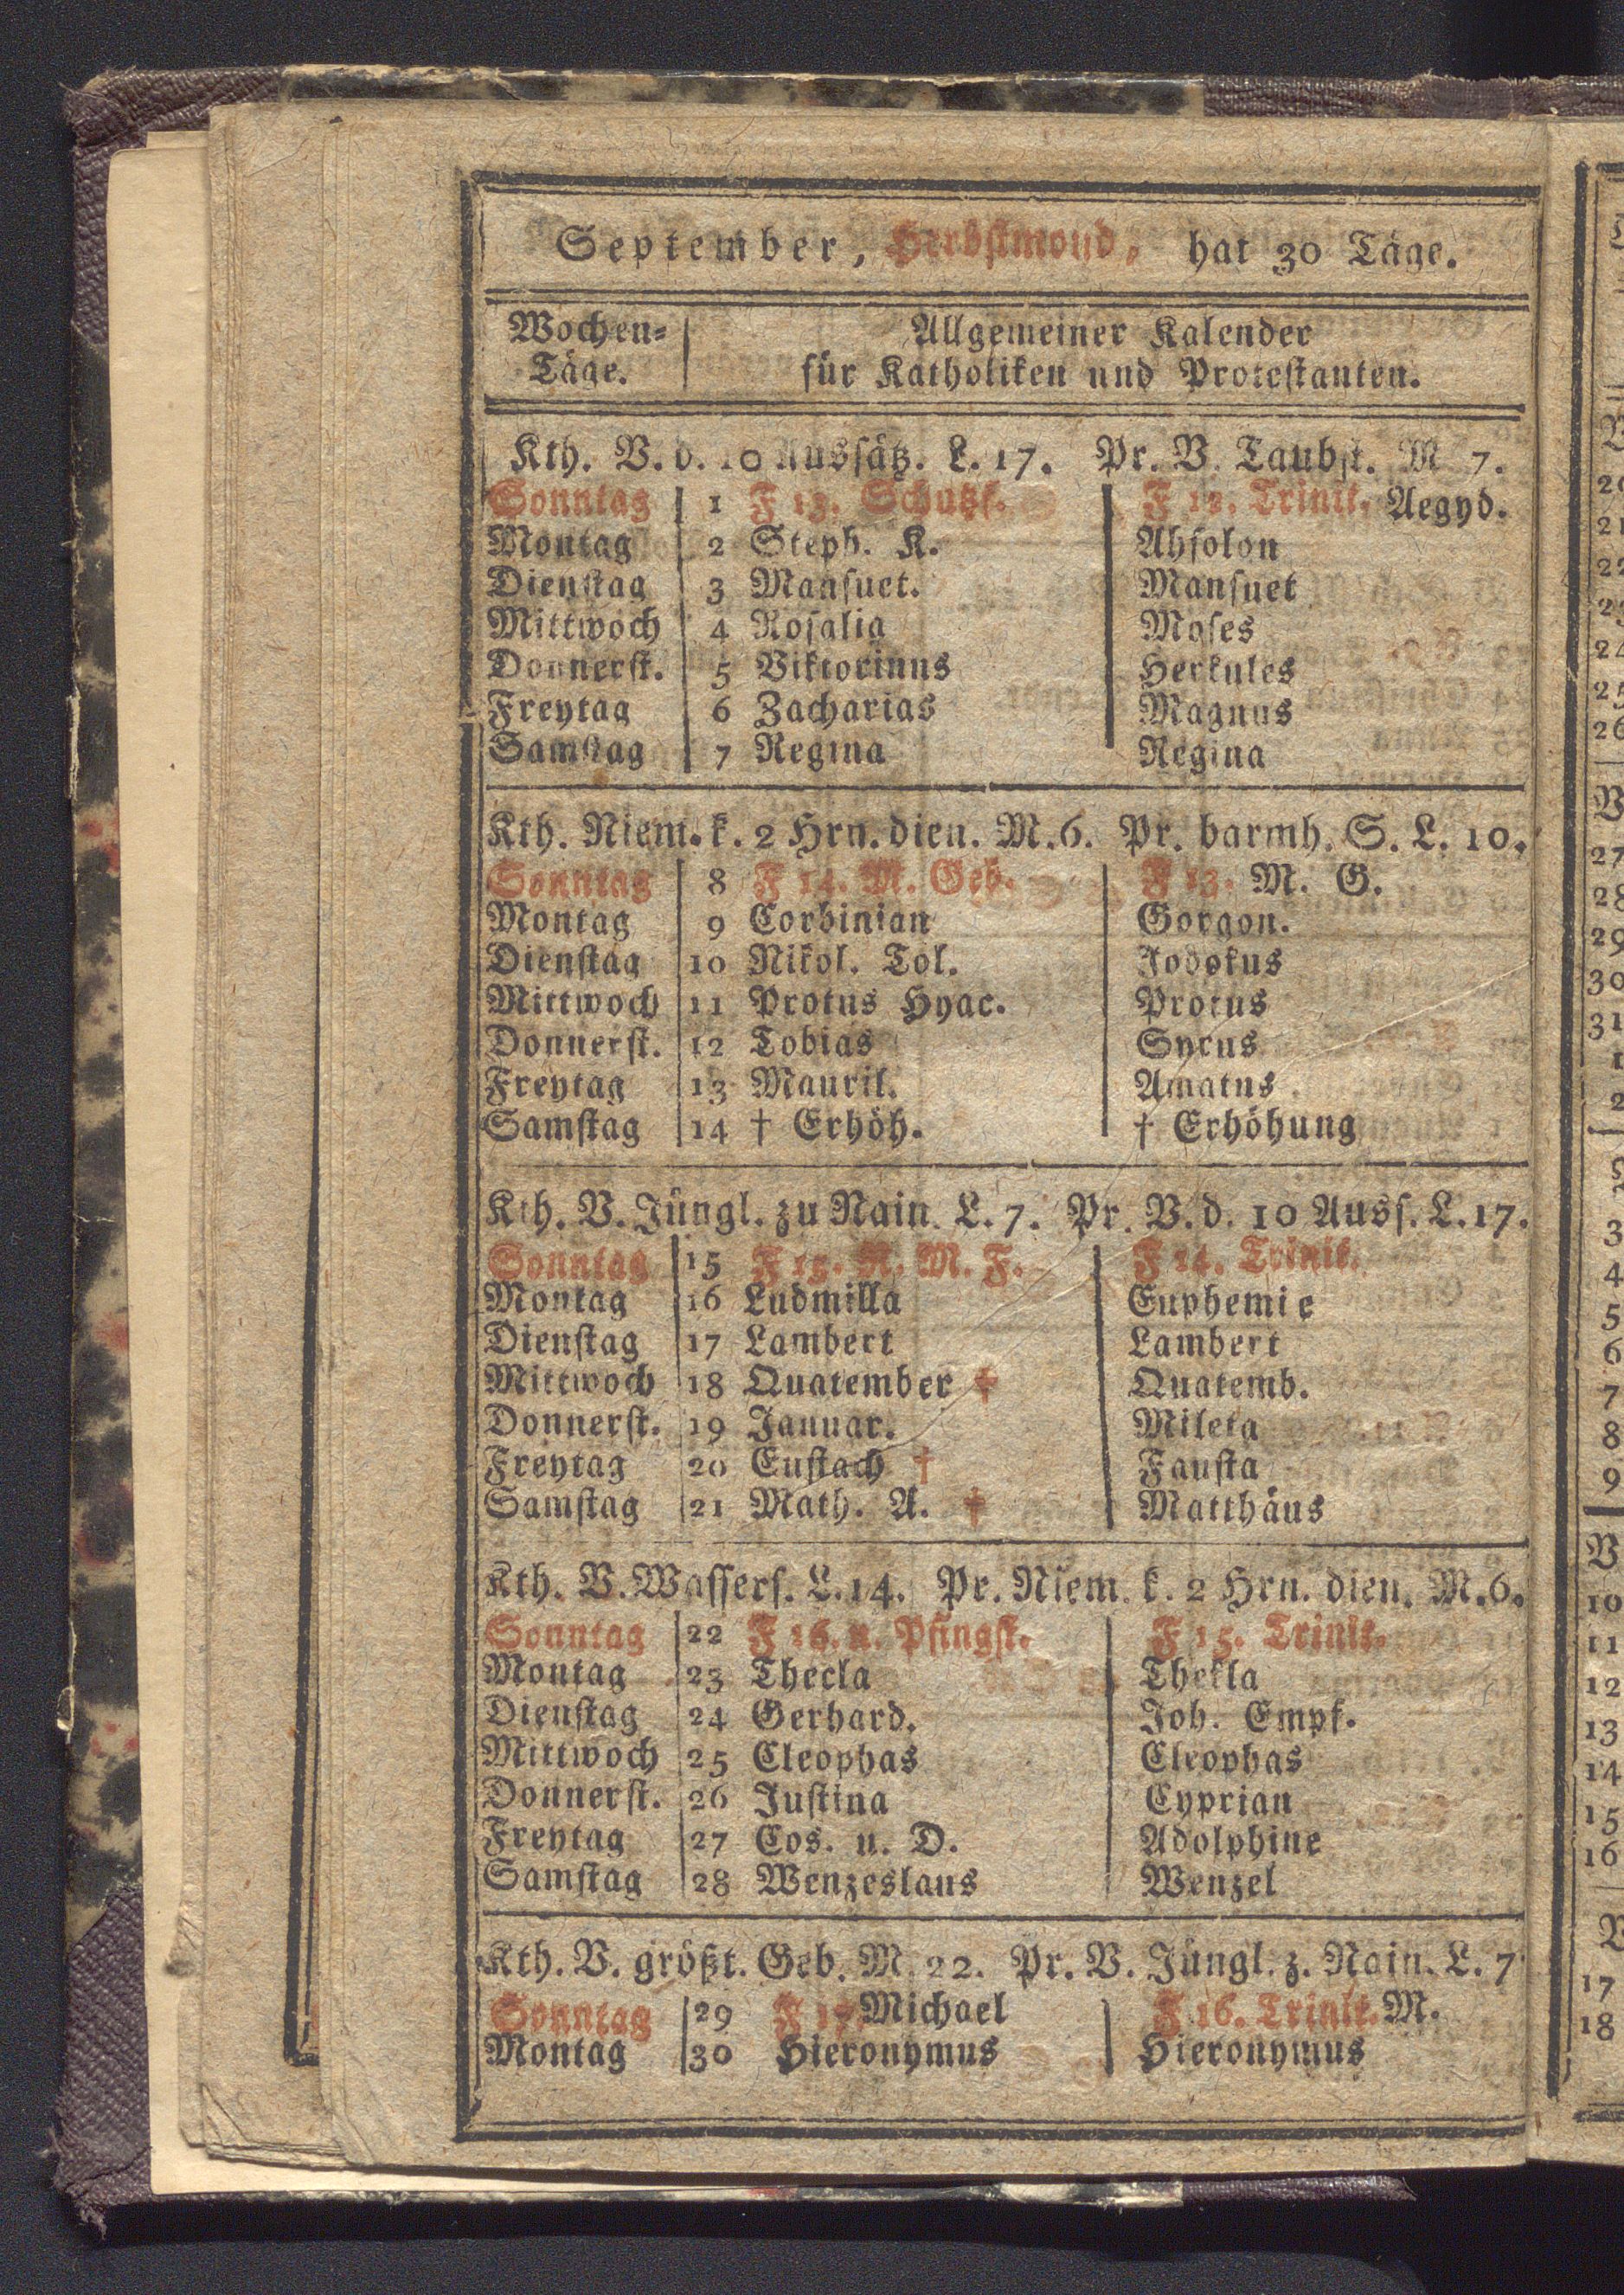 September, Herbstmond, hat 30 Täge.
Wochen= Allgemeiner Kalender
Täge. für Katholiken und Protestanten.
Kth. V. d. 10 Aussätz. L. 17. Pr. V. Taubst. M 7.
Sonntag 1 F 13. Schutzf. F 12. Trinit. Aegyd.
Montag 2 Steph. K. Absolon
Dienstag 3 Mansuet. Mansuet
Mittwoch 4 Rosalia Moses
Donnerst. 5 Viktorinus Herkules
Freytag 6 Zacharias Magnus
Samstag 7 Regina Regina
Kth. Niem. k. 2 Hrn. dien. M. 6. Pr. barmh. S. L. 10.
Sonntag 8 F 14. M. Geb. F 13. M. G.
Montag 9 Corbinian Gorgon.
Dienstag 10 Nikol. Tol. Jodokus
Mittwoch 11 Protus Hyac. Protus
Donnerst. 12 Tobias Syrus
Freytag 13 Mauril. Amatus
Samstag 14 † Erhöh. † Erhöhung
Kth. V. Jüngl. zu Nain. L. 7. Pr. V. d. 10 Auss. L. 17.
Sonntag 15 F 15. N. M. F. F 14. Trinit.
Montag 16 Ludmilla Euphemie
Dienstag 17 Lambert Lambert
Mittwoch 18 Quatember † Quatemb.
Donnerst. 19 Januar. Mileta
Freytag 20 Eustach † Fausta
Samstag 21 Math. A. † Matthäus
Kth. V. Wassers. L. 14. Pr. Niem. k. 2 Hrn. dien. M. 6.
Sonntag 22 F 16. n. Pfingst. F 15. Trinit.
Montag 23 Thecla Thekla
Dienstag 24 Gerhard. Joh. Empf.
Mittwoch 25 Cleophas Cleophas
Donnerst. 26 Justina Cyprian
Freytag 27 Cos. u. D. Adolphine
Samstag 28 Wenzeslaus Wenzel
Kth. V. größt. Geb. M. 22. Pr. V. Jüngl. z. Nain. L. 7
Sonntag 29 F 17. Michael F 16. Trinit. M.
Montag 30 Hieronymus Hieronymus